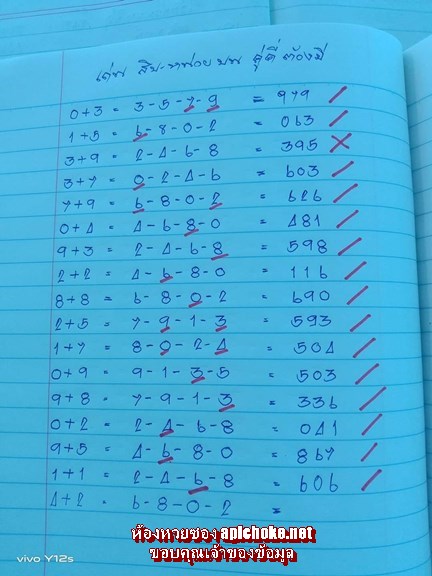 เด่น สิบ-หน่วย บน คู่คี่ ต้องมี
0+3 = 3-5-7-9 = 979 /
1+5 = 6-8-0-2 = 063 /
3+9 = 2-4-6-8 = 395 X
3+7 = 0-2-4-6 = 603 /
7+9 = 6-8-0-2 = 626 /
0+4 = 4-6-8-0 = 481 /
9+3 = 2-4-6-8 = 598 /
2+2 = 4-6-8-0 = 116 /
8+8 = 6-8-0-2 = 690 /
2+5 = 7-9-1-3 = 593 /
1+7 = 8-0-2-4 = 504 /
0+9 = 9-1-3-5 = 503 /
9+8 = 7-9-1-3 = 336 /
0+2 = 2-4-6-8 = 041 /
9+5 = 4-6-8-0 = 867 /
1+1 = 2-4-6-8 = 606 /
4+2 = 6-8-0-2 =
ห้องหวยซอง aplchoke.net
ขอบคุณเจ้าของข้อมูล
vivo Y12s